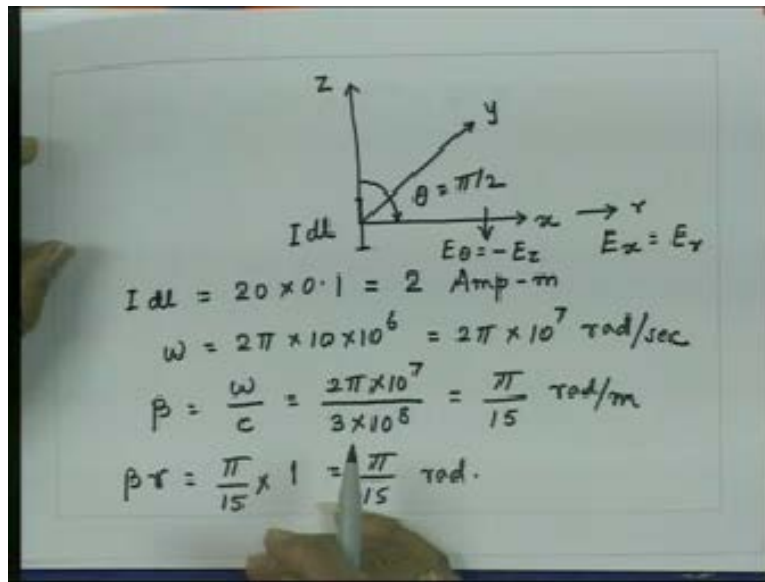 z
y
θ = π/2
I dl
x → r
Eθ = -Ez
Ex = Er
I dl = 20 × 0.1 = 2 Amp-m
ω = 2π × 10 × 10^6 = 2π × 10^7 rad/sec
β = ω/c = 2π×10^7 / 3×10^8 = π/15 rad/m
βr = π/15 × 1 = π/15 rad.